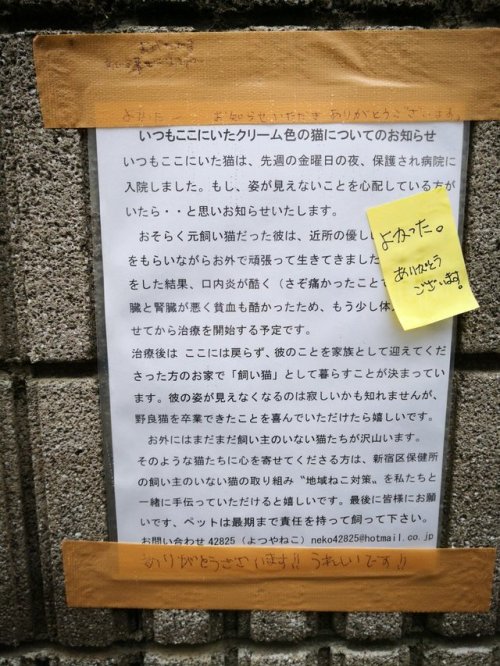 よかった〜 お知らせいただきありがとうございます。
いつもここにいたクリーム色の猫についてのお知らせ
いつもここにいた猫は、先週の金曜日の夜、保護され病院に
入院しました。もし、姿が見えないことを心配している方が
いたら・・と思いお知らせいたします。
おそらく元飼い猫だった彼は、近所の優し
をもらいながらお外で頑張って生きてきました
をした結果、口内炎が酷く（さぞ痛かったことで
臓と腎臓が悪く貧血も酷かったため、もう少し体
せてから治療を開始する予定です。
治療後は ここには戻らず、彼のことを家族として迎えてくだ
さった方のお家で「飼い猫」として暮らすことが決まってい
ます。彼の姿が見えなくなるのは寂しいかも知れませんが、
野良猫を卒業できたことを喜んでいただけたら嬉しいです。
お外にはまだまだ飼い主のいない猫たちが沢山います。
そのような猫たちに心を寄せてくださる方は、新宿区保健所
の飼い主のいない猫の取り組み〝地域ねこ対策〟を私たちと
一緒に手伝っていただけると嬉しいです。最後に皆様にお願
いです、ペットは最期まで責任を持って飼って下さい。
お問い合わせ 42825（よつやねこ）neko42825@hotmail.co.jp
よかった。
ありがとう
ございます。
ありがとうございます!! うれしいです!!